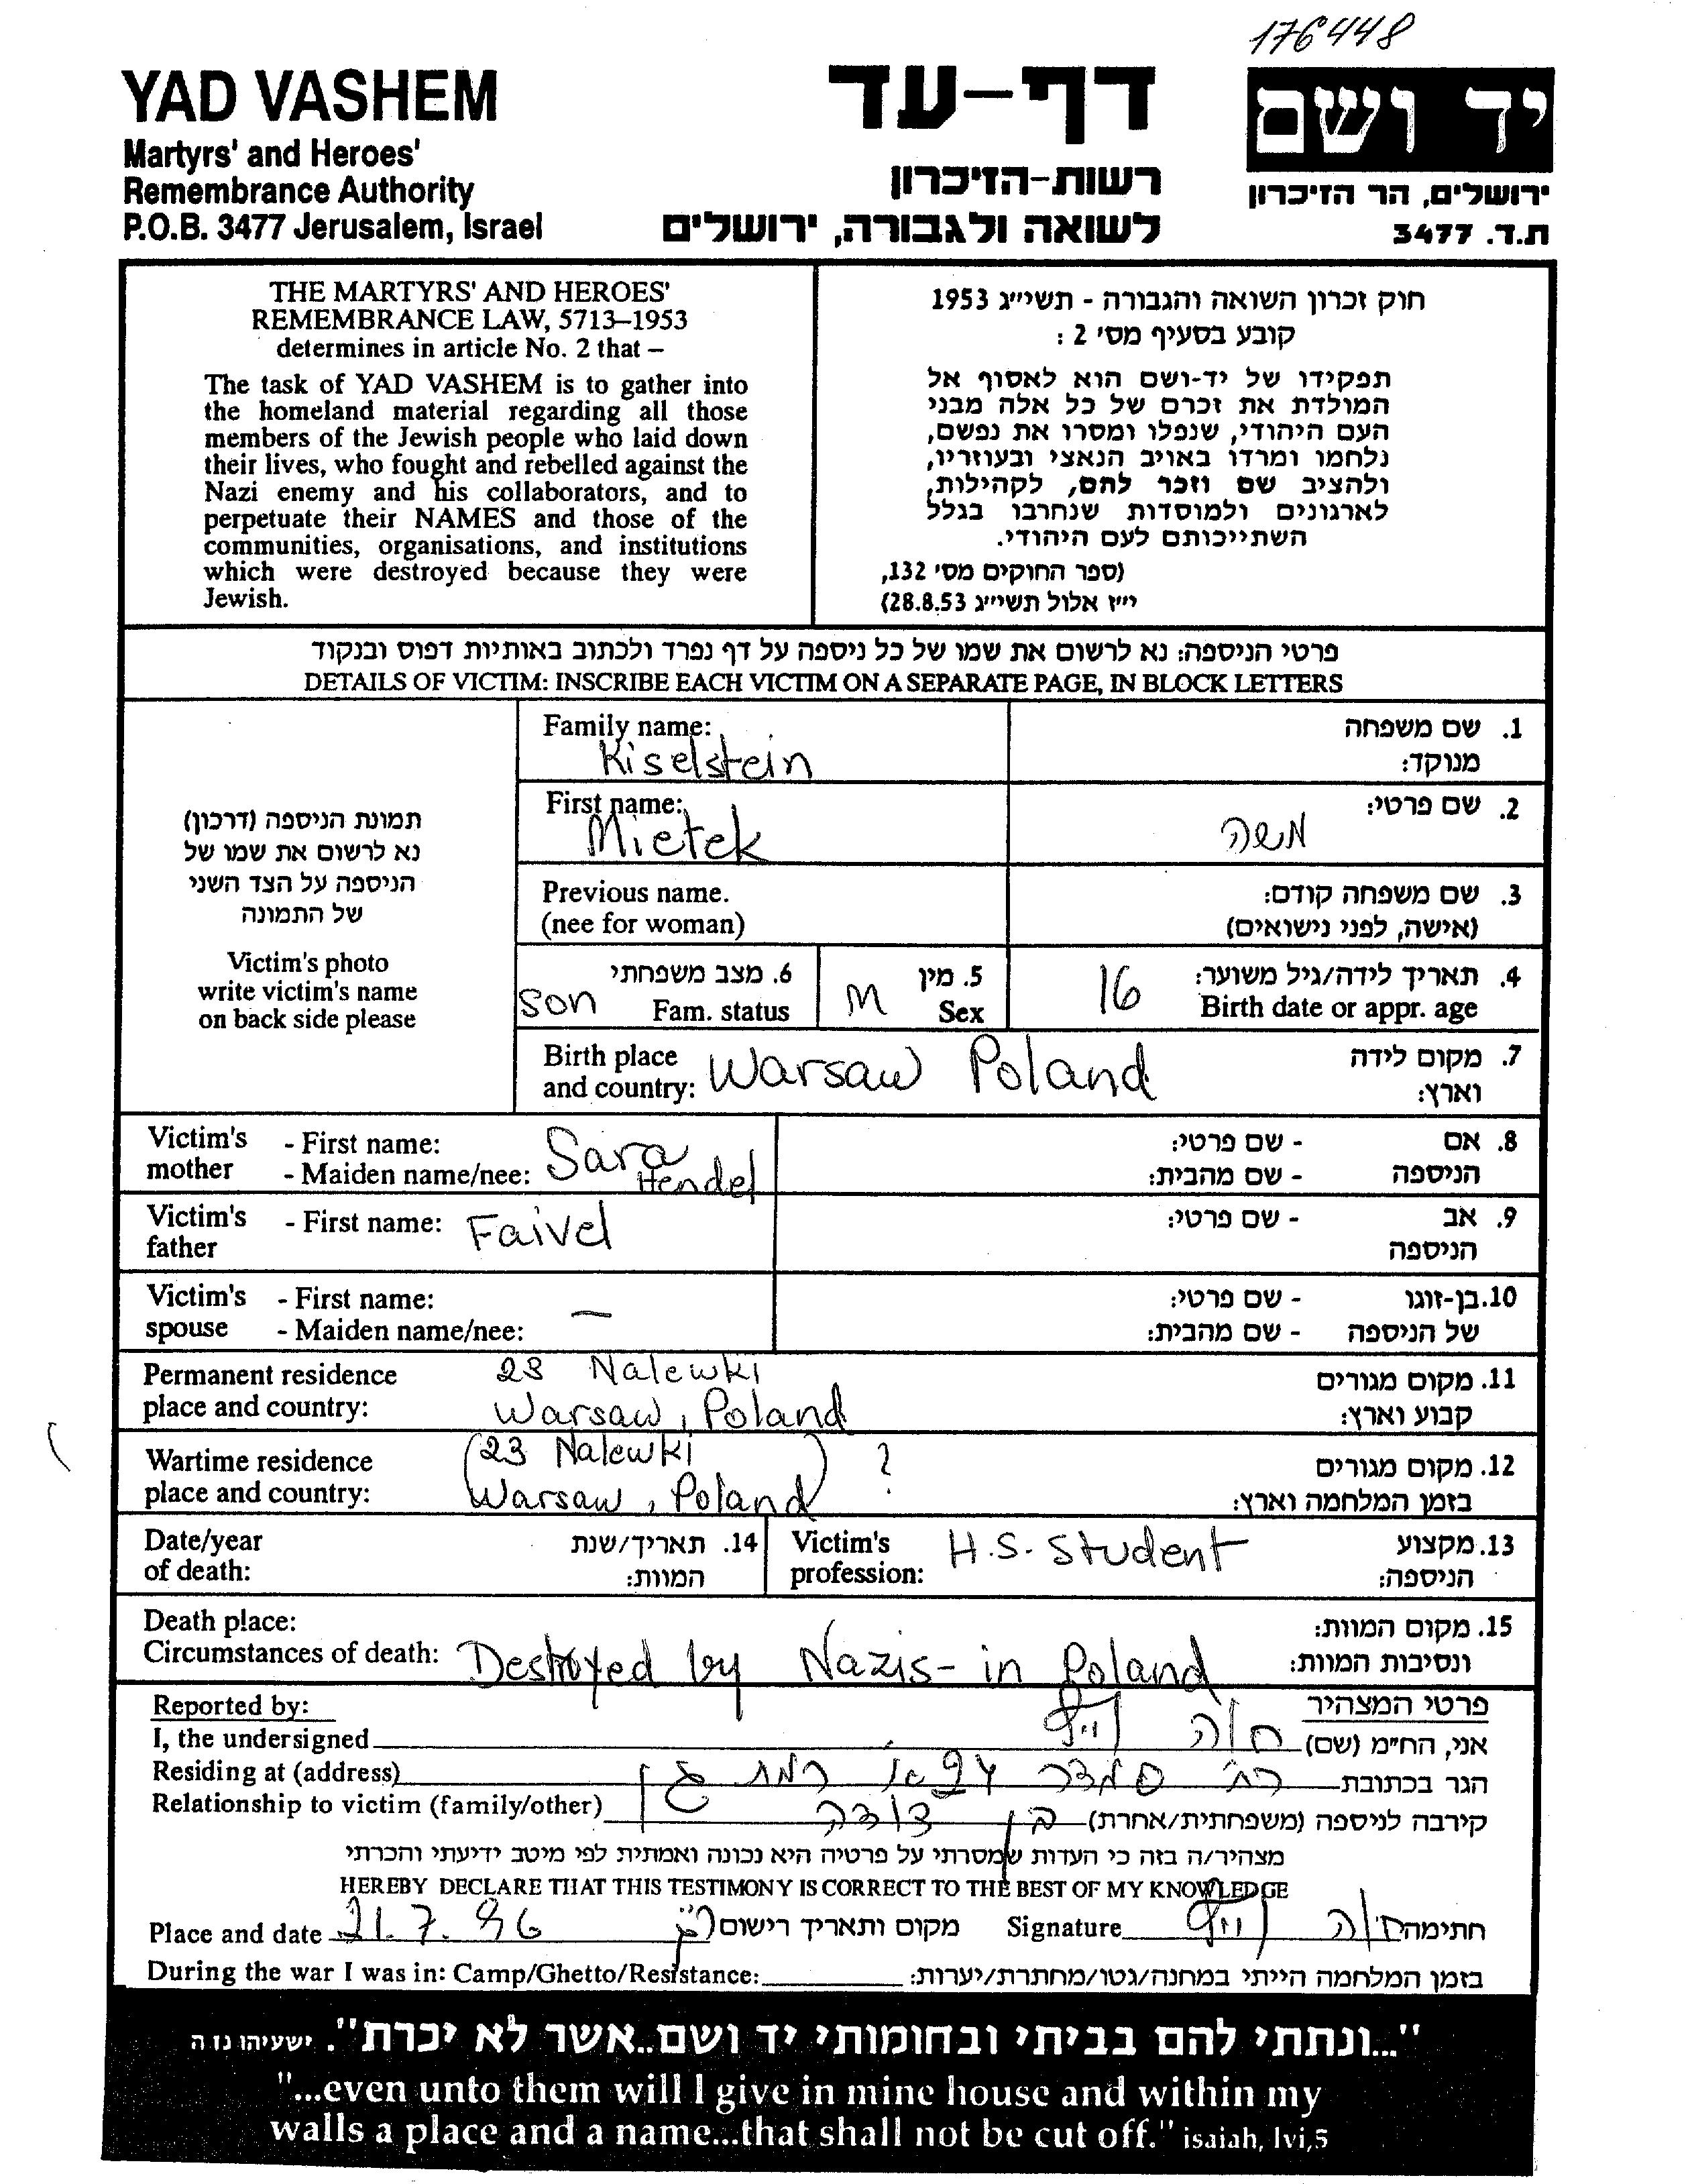 176448
YAD VASHEM
Martyrs' and Heroes'
Remembrance Authority
P.O.B. 3477 Jerusalem, Israel
דף-עד
רשות-הזיכרון
לשואה ולגבורה, ירושלים
יד ושם
ירושלים, הר הזיכרון
ת.ד. 3477
THE MARTYRS' AND HEROES'
REMEMBRANCE LAW, 5713–1953
determines in article No. 2 that –
The task of YAD VASHEM is to gather into
the homeland material regarding all those
members of the Jewish people who laid down
their lives, who fought and rebelled against the
Nazi enemy and his collaborators, and to
perpetuate their NAMES and those of the
communities, organisations, and institutions
which were destroyed because they were
Jewish.
חוק זכרון השואה והגבורה - תשי״ג 1953
קובע בסעיף מס׳ 2 :
תפקידו של יד-ושם הוא לאסוף אל
המולדת את זכרם של כל אלה מבני
העם היהודי, שנפלו ומסרו את נפשם,
נלחמו ומרדו באויב הנאצי ובעוזריו,
ולהציב שם וזכר להם, לקהילות,
לארגונים ולמוסדות שנחרבו בגלל
השתייכותם לעם היהודי.
(ספר החוקים מס׳ 132,
י״ז אלול תשי״ג 28.8.53)
פרטי הניספה: נא לרשום את שמו של כל ניספה על דף נפרד ולכתוב באותיות דפוס ובנקוד
DETAILS OF VICTIM: INSCRIBE EACH VICTIM ON A SEPARATE PAGE, IN BLOCK LETTERS
תמונת הניספה (דרכון)
נא לרשום את שמו של
הניספה על הצד השני
של התמונה
Victim's photo
write victim's name
on back side please
Family name: 1. שם משפחה
Kiselstein מנוקד:
First name: 2. שם פרטי:
Mietek משה
Previous name. 3. שם משפחה קודם:
(nee for woman) (אישה, לפני נישואים)
6. מצב משפחתי 5. מין 4. תאריך לידה/גיל משוער:
son Fam. status M Sex 16 Birth date or appr. age
Birth place 7. מקום לידה
and country: Warsaw Poland וארץ:
Victim's - First name: Sara - שם פרטי: 8. אם
mother - Maiden name/nee: Hendel - שם מהבית: הניספה
Victim's - First name: Faivel - שם פרטי: 9. אב
father הניספה
Victim's - First name: — - שם פרטי: 10. בן-זוגו
spouse - Maiden name/nee: - שם מהבית: של הניספה
Permanent residence 23 Nalewki 11. מקום מגורים
place and country: Warsaw, Poland קבוע וארץ:
Wartime residence (23 Nalewki 12. מקום מגורים
place and country: Warsaw, Poland) ? בזמן המלחמה וארץ:
Date/year 14. תאריך/שנת Victim's H.S. Student 13. מקצוע
of death: המוות: profession: הניספה:
Death place: 15. מקום המוות:
Circumstances of death: Destroyed by Nazis- in Poland ונסיבות המוות:
Reported by: פרטי המצהיר
I, the undersigned אני, הח״מ (שם) חוה
Residing at (address) הגר בכתובת רמת גן
Relationship to victim (family/other) קירבה לניספה (משפחתית/אחרת) בן דודה
מצהיר/ה בזה כי העדות שמסרתי על פרטיה היא נכונה ואמתית לפי מיטב ידיעתי והכרתי
HEREBY DECLARE THAT THIS TESTIMONY IS CORRECT TO THE BEST OF MY KNOWLEDGE
Place and date 21.7.96 מקום ותאריך רישום Signature חתימה חוה
During the war I was in: Camp/Ghetto/Resistance: בזמן המלחמה הייתי במחנה/גטו/מחתרת/יערות:
"...ונתתי להם בביתי ובחומותי יד ושם..אשר לא יכרת". ישעיהו נו ה
"...even unto them will I give in mine house and within my
walls a place and a name...that shall not be cut off." isaiah, lvi,5